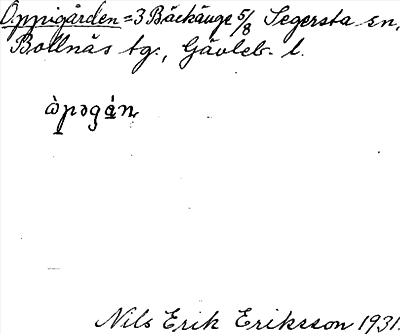 Oppigården = 3 Bäckänge 5/8 Segersta sn,
Bollnäs tg., Gävleb. l.
òpəgán
Nils Erik Eriksson 1931.